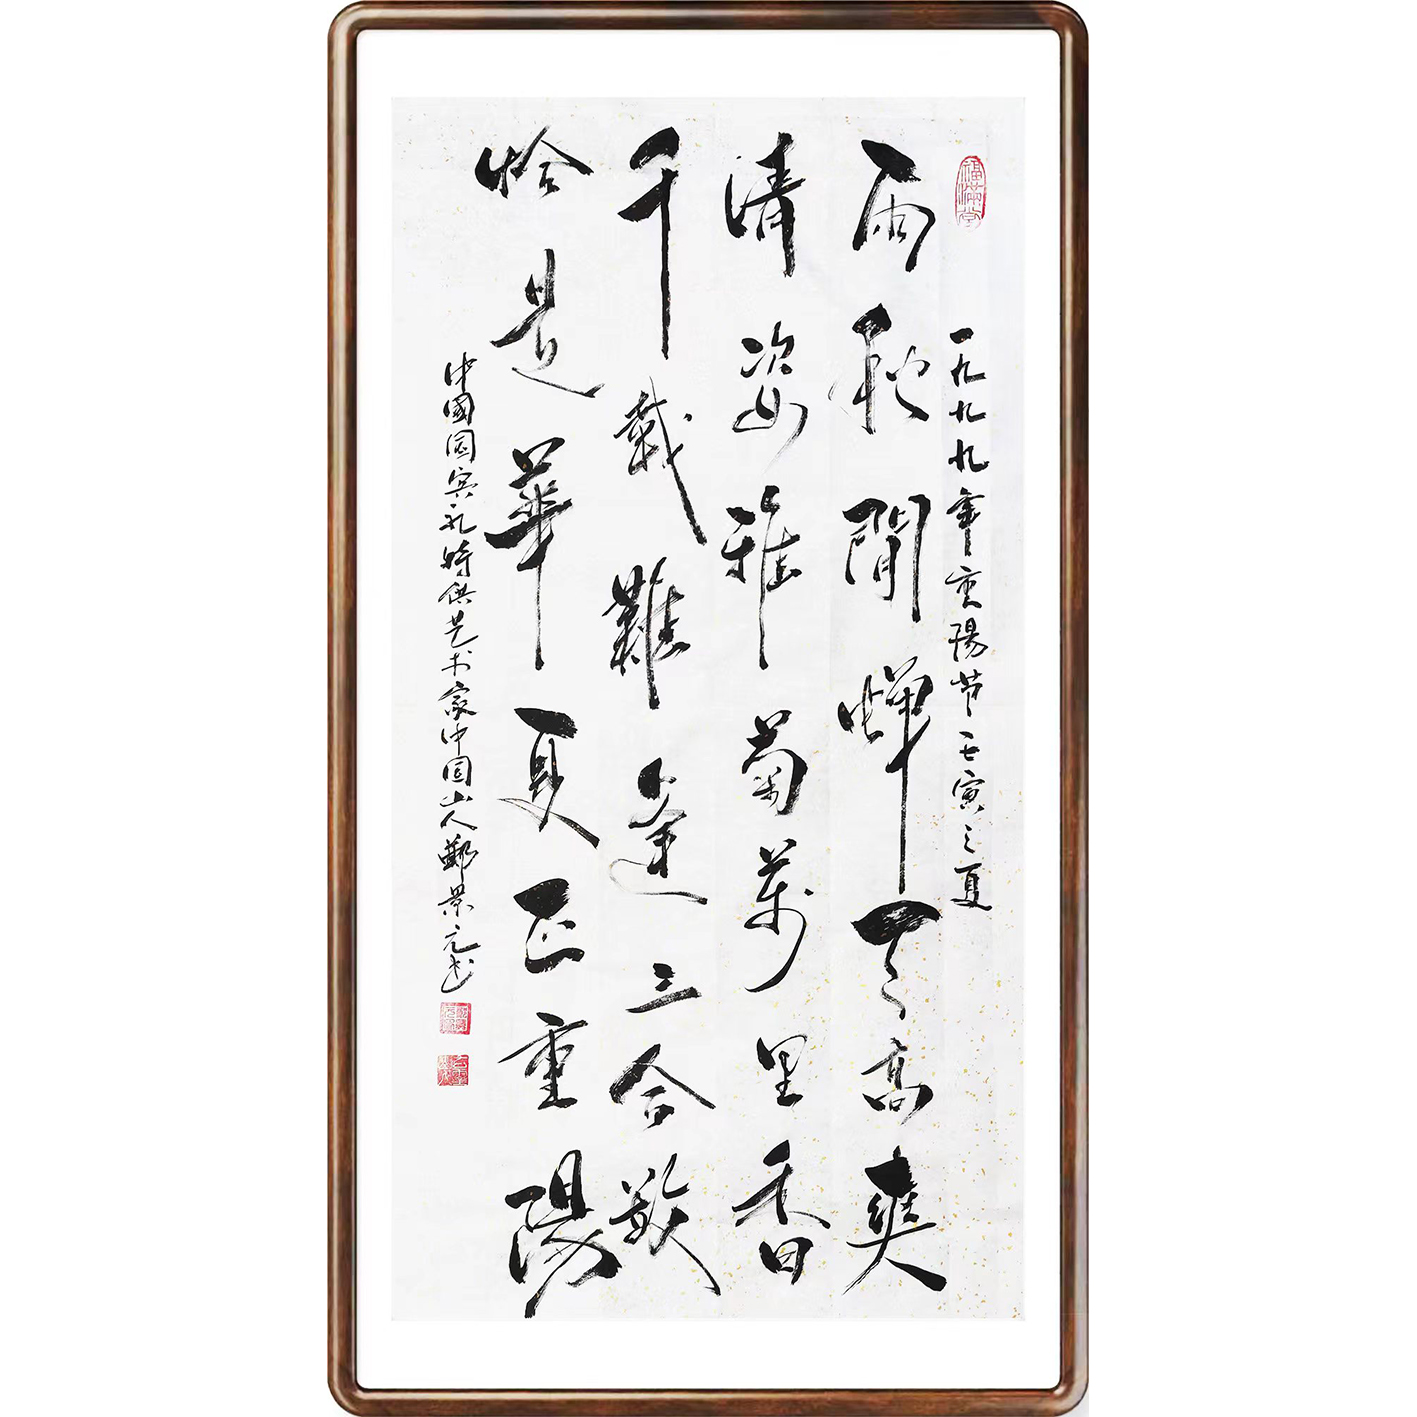 福满堂
一九九九年重陽节壬寅之夏
雨秋聞蟬天高爽
清姿雅菊萬里香
千載難逢三合數
恰是華夏正重陽
中國国宾礼特供艺术家中国山人鄭景元书